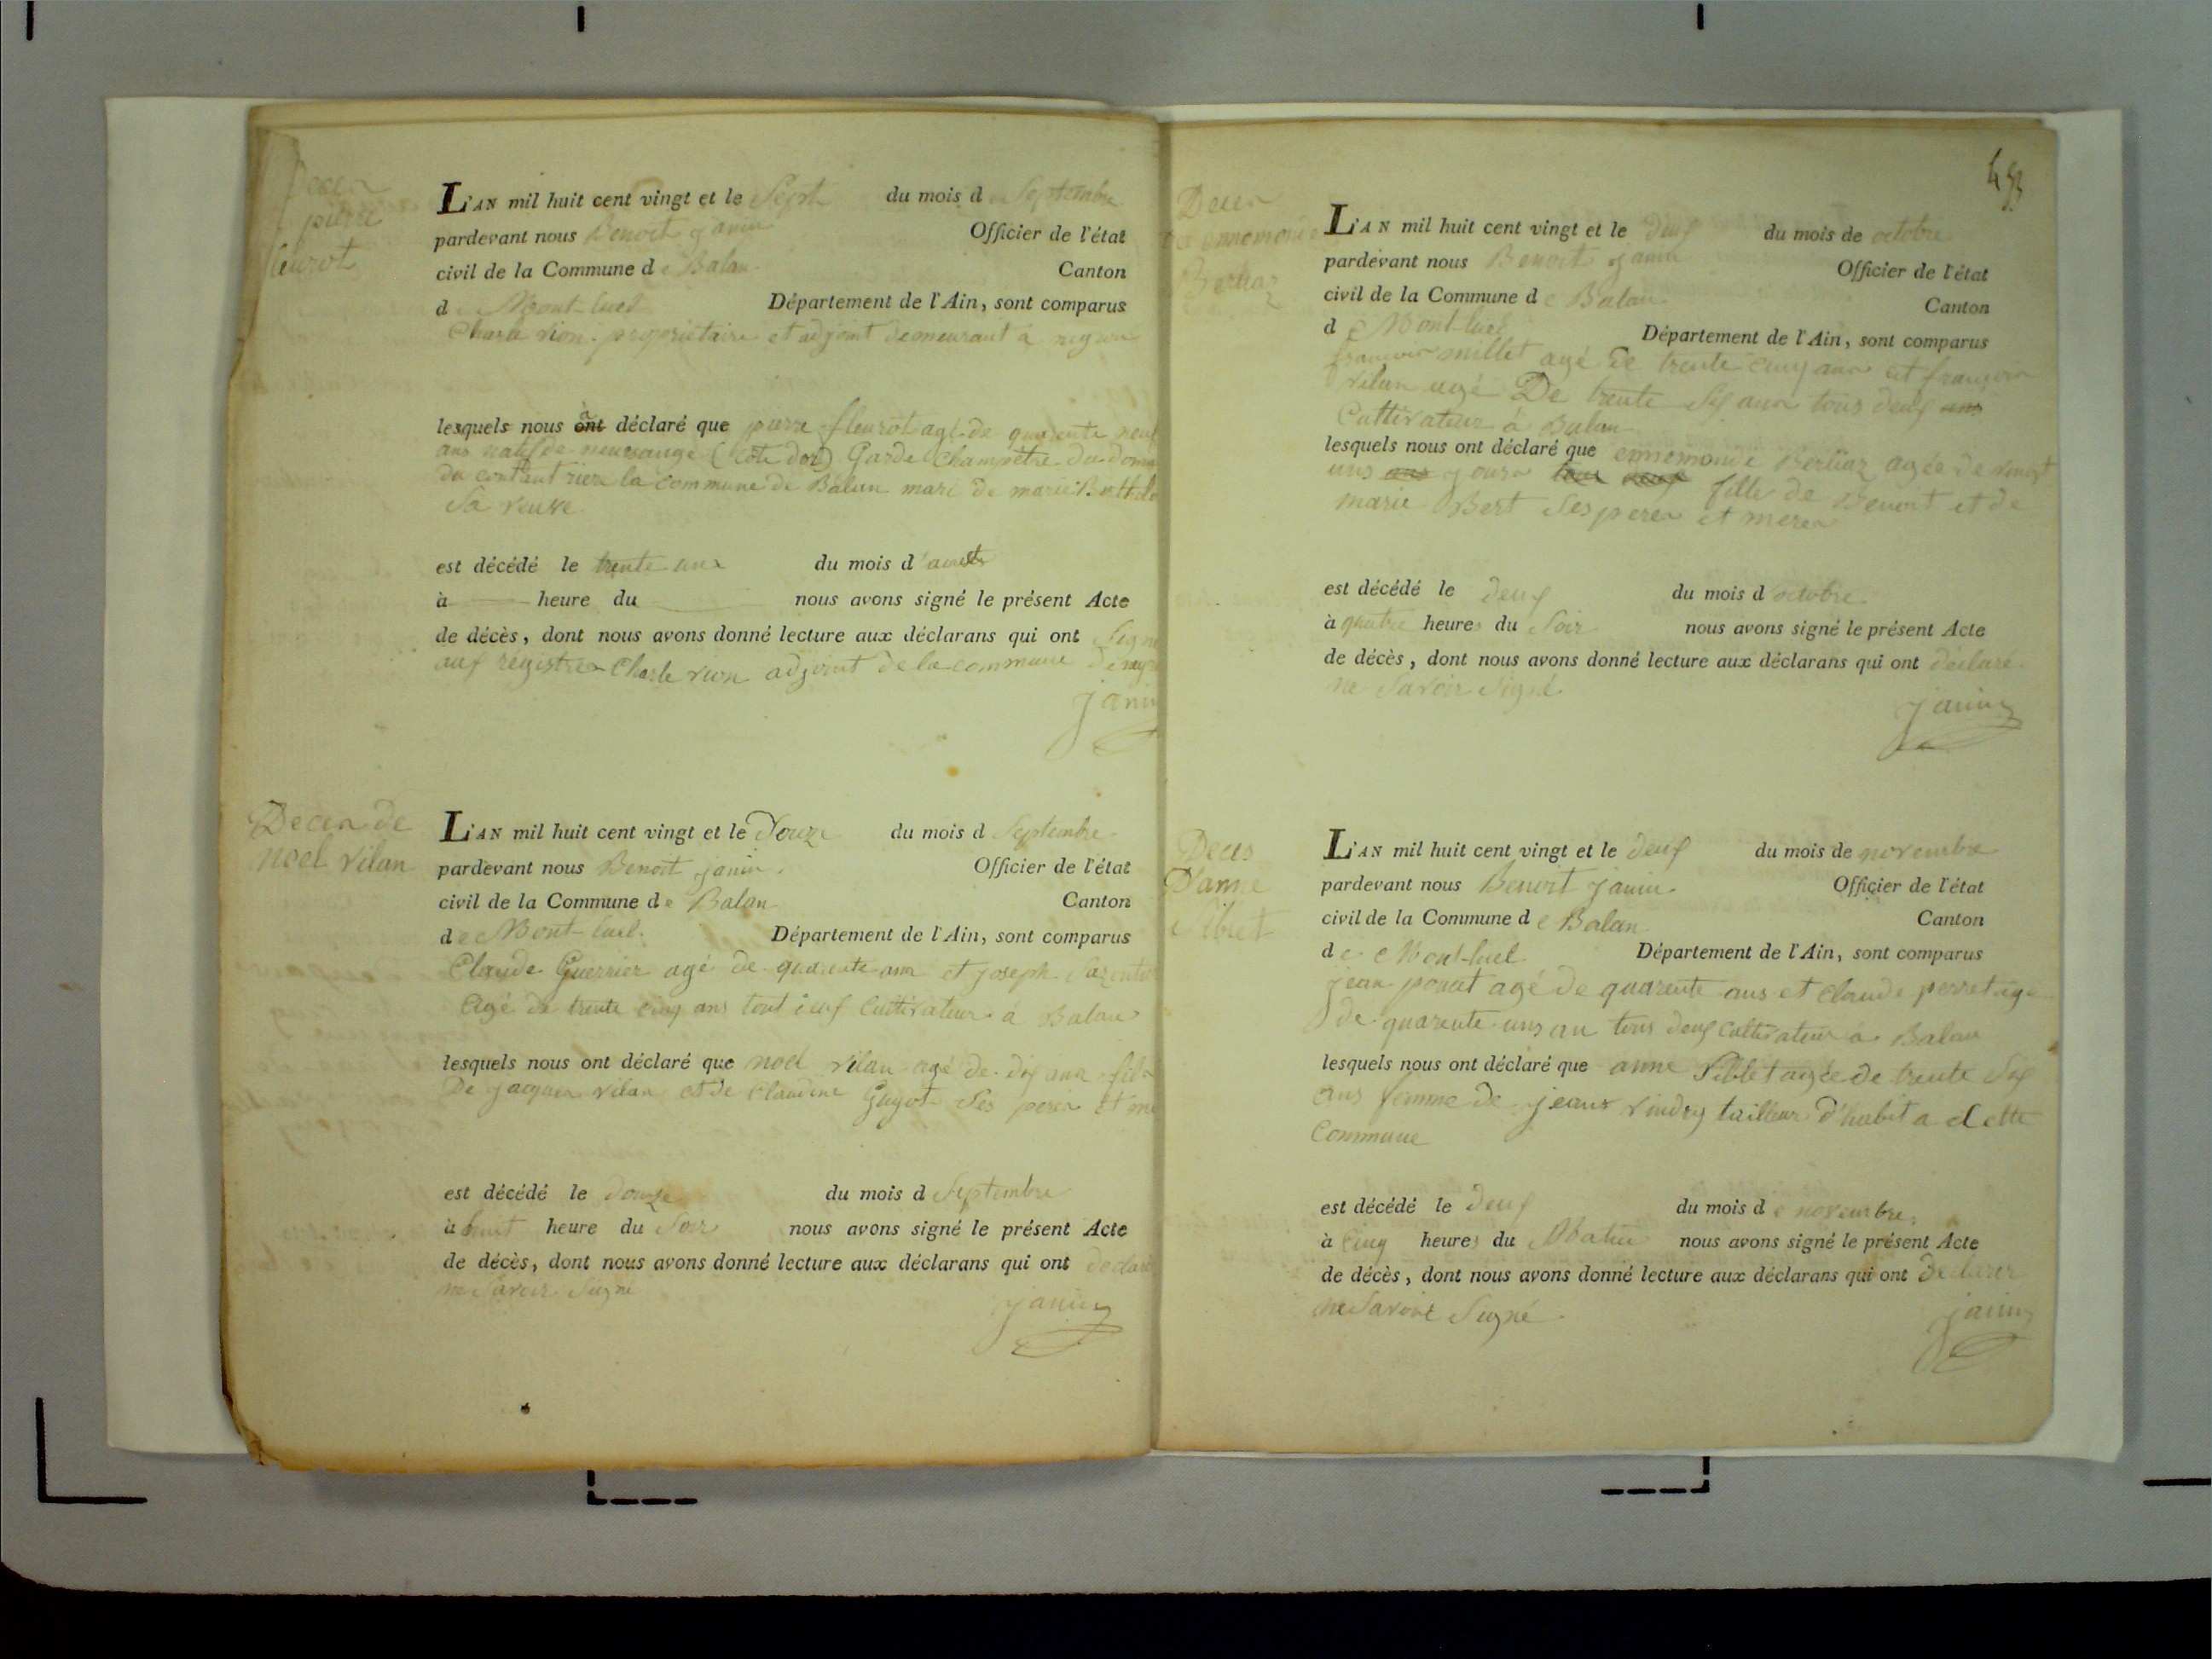 Deces
pierre
fleurot
L'AN mil huit cent vingt et le Sept du mois de Septembre
pardevant nous Benoit janin Officier de l'état
civil de la Commune de Balan Canton
de Mont-luel Département de l'Ain, sont comparus
Charle rion propriétaire et adjoint demeurant à
lesquels nous ont à déclaré que pierre fleurot agé de quarente neuf
ans natif de (Cote dor) Garde Champêtre du
du content riere la commune de Balan mari de marie
Sa veuve
est décédé le trente une du mois d'aoust
à heure du nous avons signé le présent Acte
de décès, dont nous avons donné lecture aux déclarans qui ont Signé
auf registres Charle rion adjoint de la commune de
janin
Deces de
noel vilan
L'AN mil huit cent vingt et le Douze du mois d Septembre
pardevant nous Benoit janin Officier de l'état
civil de la Commune de Balan Canton
de Mont-luel. Département de l'Ain, sont comparus
Claude Guerrier agé de quarente ans et joseph
agé de trente cinq ans tout deuf Cultivateur à Balan
lesquels nous ont déclaré que noel vilan agé de dix ans fils
De jacques vilan et de Claudine Guyot Ses peres et
est décédé le douze du mois d Septembre
à huit heure du Soir nous avons signé le présent Acte
de décès, dont nous avons donné lecture aux déclarans qui ont declaré
ne Savoir Signé
janin
453
Deces
ennemonde
Berliaz
L'AN mil huit cent vingt et le deuf du mois de octobre
pardevant nous Benoit janin Officier de l'état
civil de la Commune de Balan Canton
de Mont-luel Département de l'Ain, sont comparus
françois millet agé de trente cinq ans et françois
vilan agé De trente Six ans tous deuf ans
Cultivateur à Balan
lesquels nous ont déclaré que ennemonde Berliaz agée de vingt
uns ans jours fille de Benoit et de
marie Bert Ses peres et meres
est décédé le deuf du mois d octobre
à quatre heures du Soir nous avons signé le présent Acte
de décès, dont nous avons donné lecture aux déclarans qui ont déclaré
ne Savoir Signé
janin
Deces
D'anne
L'AN mil huit cent vingt et le deuf du mois de novembre
pardevant nous Benoit janin Officier de l'état
civil de la Commune de Balan Canton
de Mont-luel Département de l'Ain, sont comparus
jean agé de quarente ans et Claude perret agé
de quarente uns an tous deuf Cultivateur a Balan
lesquels nous ont déclaré que anne agée de trente Six
ans femme de jean vindry tailleur d'habit a Cette
Commune
est décédé le deuf du mois de novembre
à Cinq heures du Matin nous avons signé le présent Acte
de décès, dont nous avons donné lecture aux déclarans qui ont Declarer
ne Savoir Signé
janin